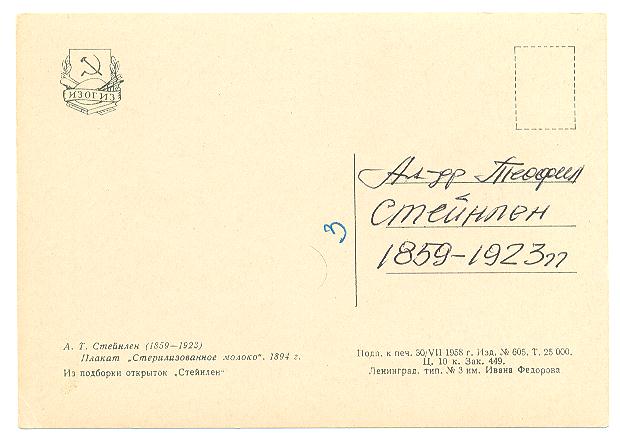 ИЗОГИЗ
Ал-др Теофил
Стейнлен
1859-1923гг
3
А. Т. Стейнлен (1859—1923)
Плакат „Стерилизованное молоко“. 1894 г.
Из подборки открыток „Стейнлен“
Подп. к печ. 30/VII 1958 г. Изд. № 605. Т. 25 000.
Ц. 10 к. Зак. 449.
Ленинград. тип. № 3 им. Ивана Федорова